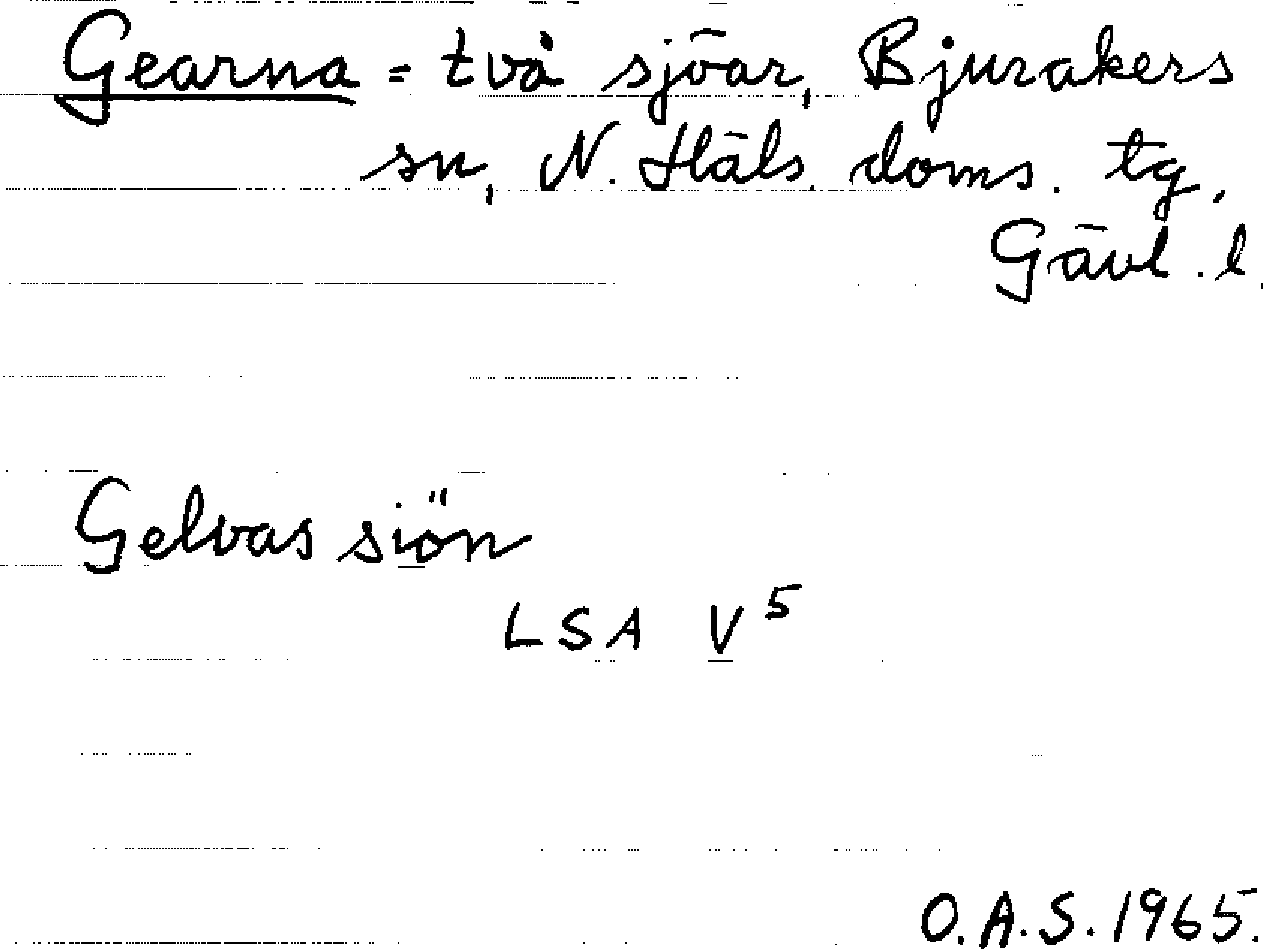 Gearna = två sjöar, Bjurakers
sn, N. Häls. doms. tg,
Gävl. l.
Gelvas siön
LSA V5
O.A.S. 1965.